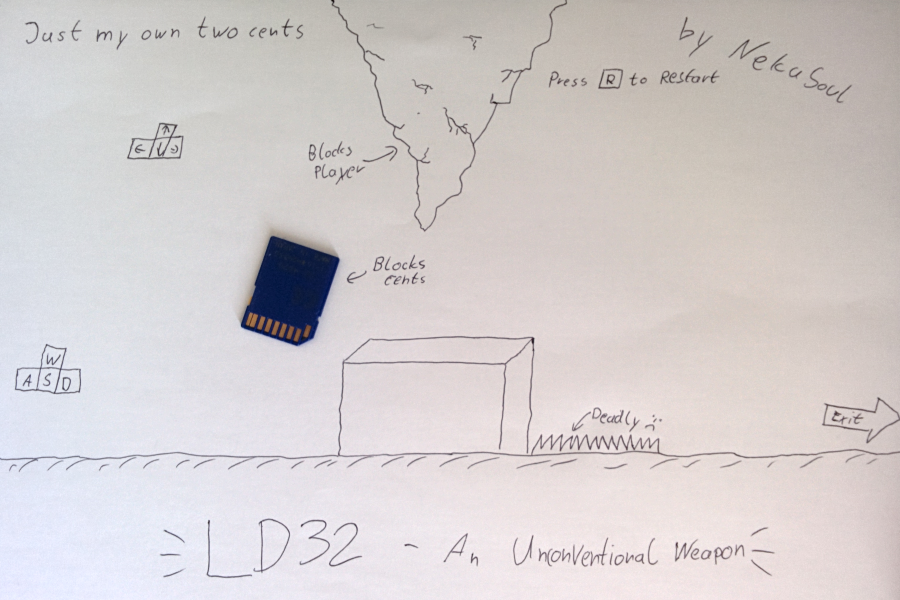 Just my own two cents
by NekuSoul
Press R to Restart
↑
← ↓ →
Blocks
Player
Blocks
cents
W
A S D
Deadly :(
Exit
LD32 - An Unconventional Weapon